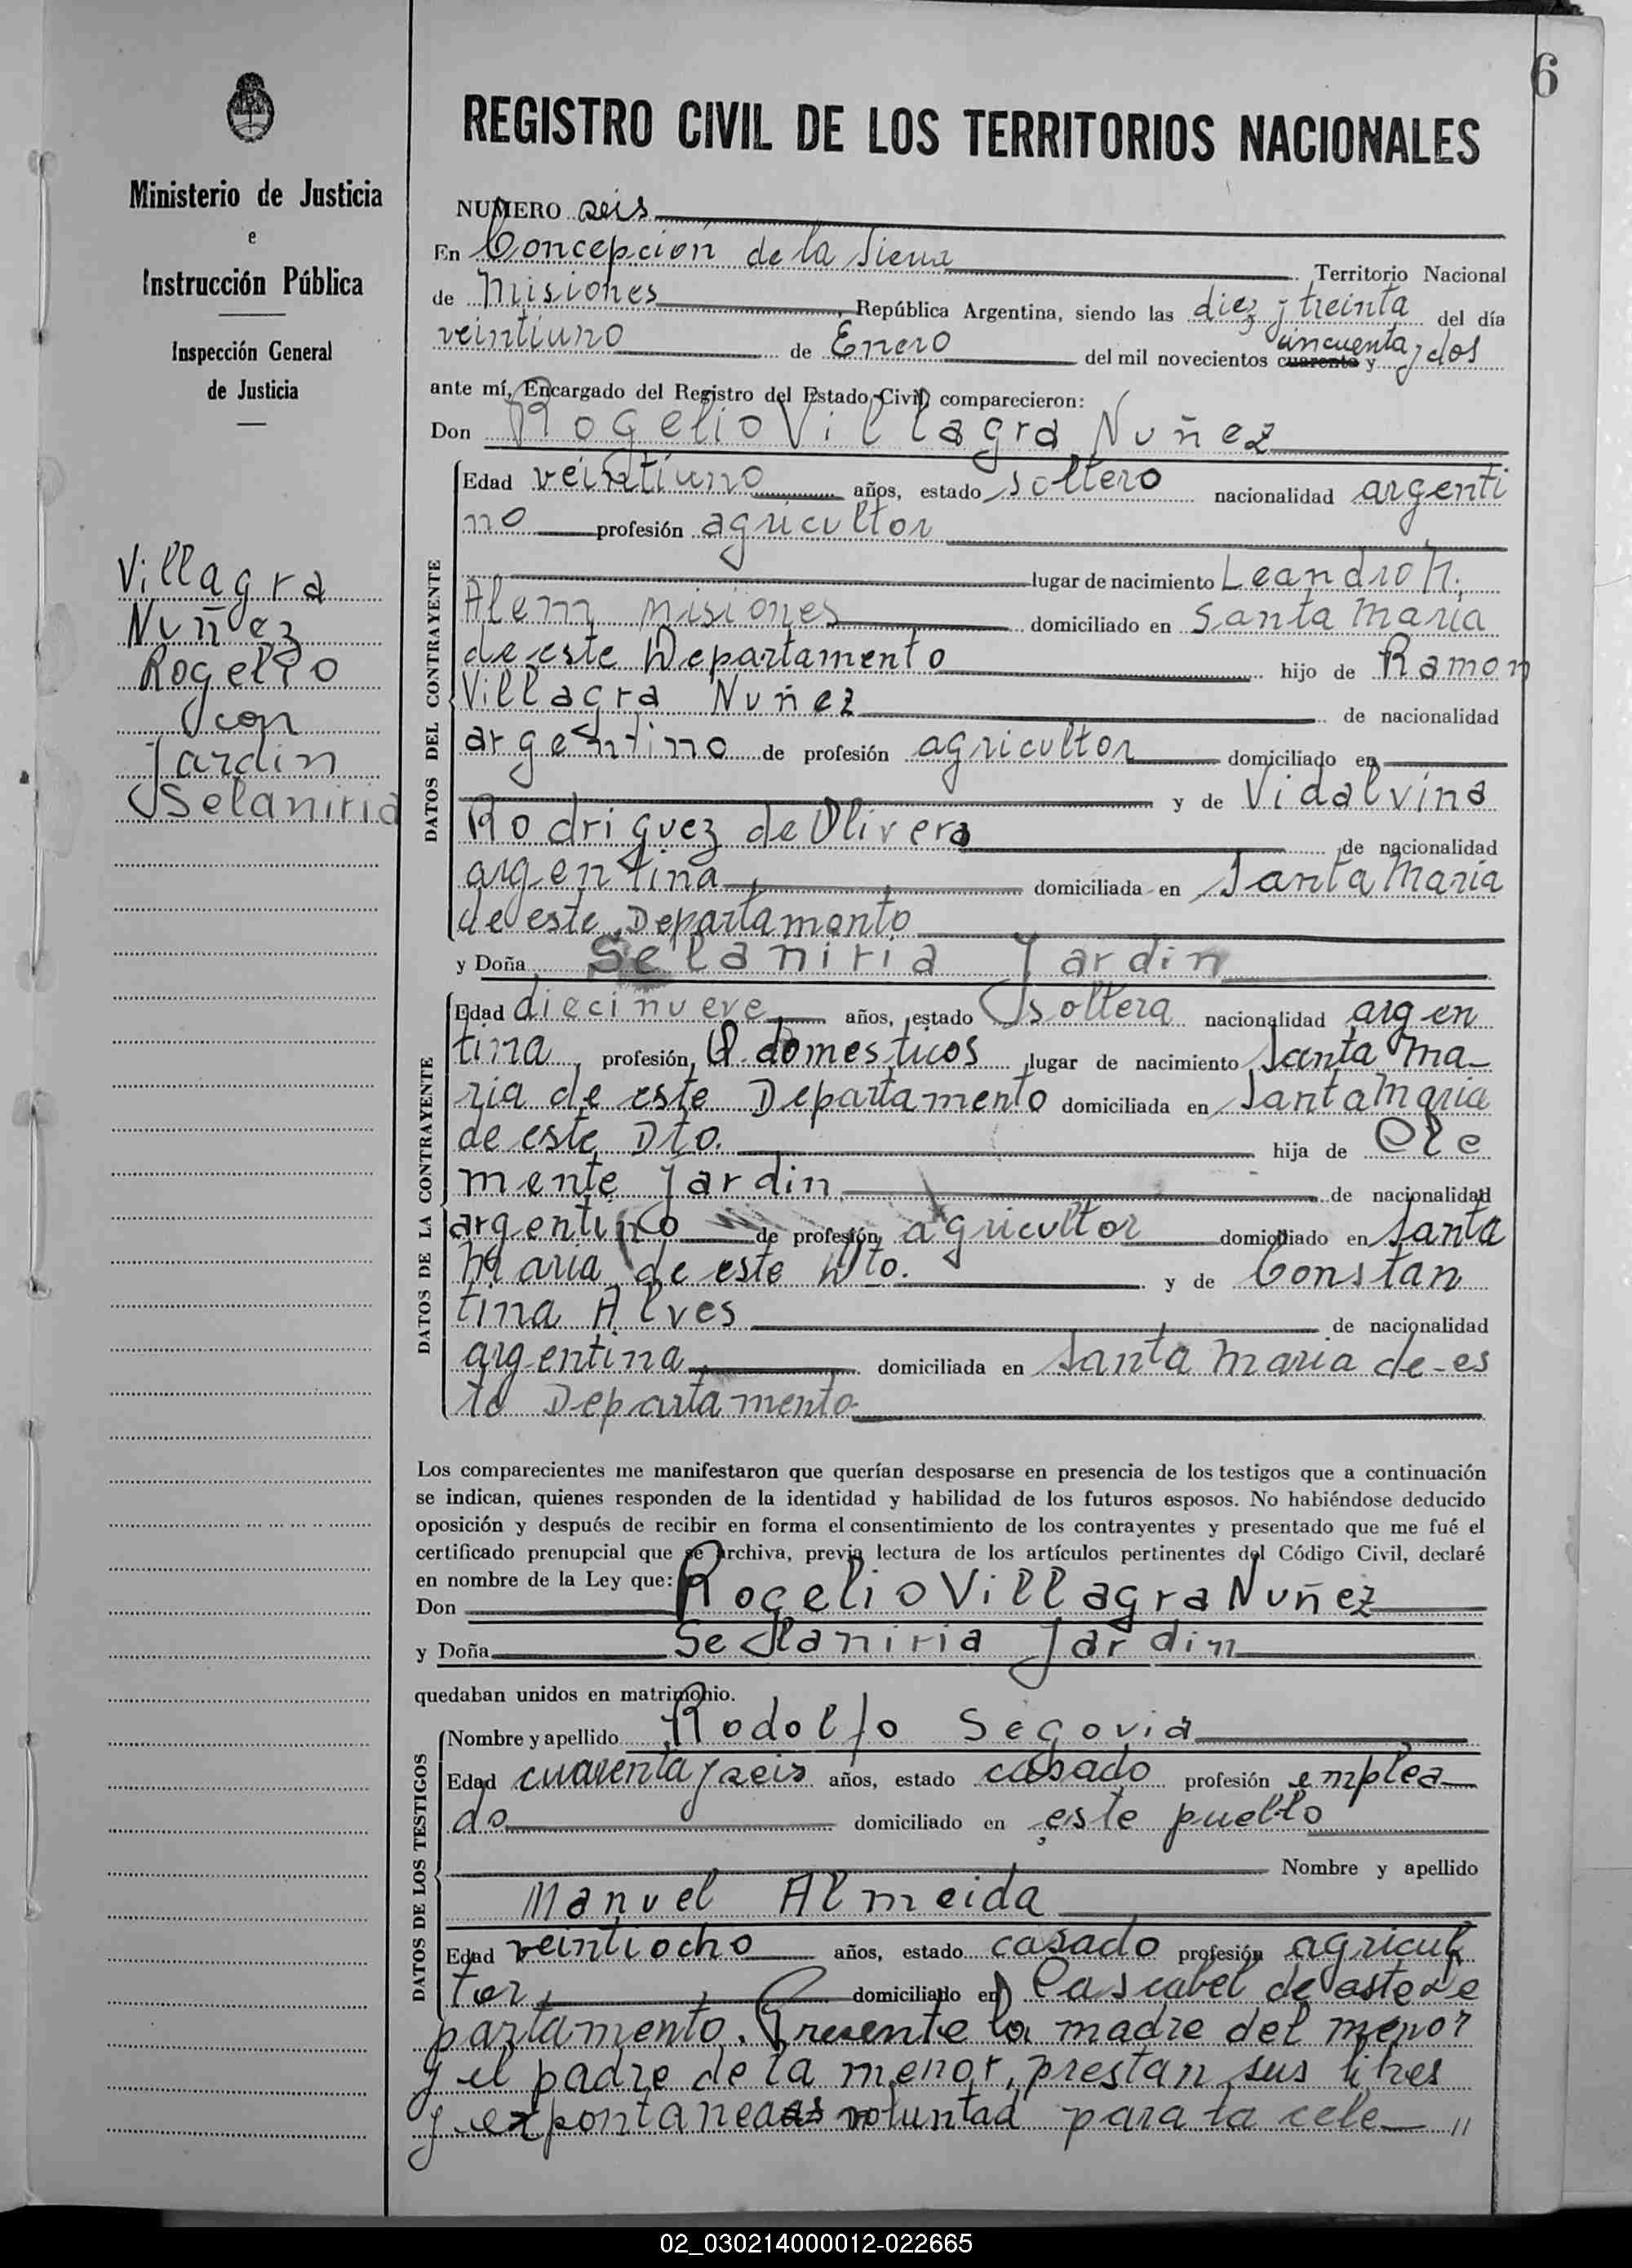 6
REGISTRO CIVIL DE LOS TERRITORIOS NACIONALES
Ministerio de Justicia
e
Instrucción Pública
Inspección General
de Justicia
Villagra
Nuñez
Rogelio
con
Jardin
Selaniria
NUMERO seis
En Concepción de la Sierra Territorio Nacional
de Misiones República Argentina, siendo las diez y treinta del día
veintiuno de Enero del mil novecientos cuarenta y cincuenta y dos
ante mí, Encargado del Registro del Estado Civil, comparecieron:
Don Rogelio Villagra Nuñez
DATOS DEL CONTRAYENTE
Edad veintiuno años, estado soltero nacionalidad argenti
no profesión agricultor
lugar de nacimiento Leandro N.
Alem misiones domiciliado en Santa Maria
de este Departamento hijo de Ramon
Villagra Nuñez de nacionalidad
argentino de profesión agricultor domiciliado en
y de Vidalvina
Rodriguez de Olivera de nacionalidad
argentina domiciliada en Santa Maria
de este Departamento
y Doña Selaniria Jardin
DATOS DE LA CONTRAYENTE
Edad diecinueve años, estado soltera nacionalidad argen
tina profesión Q. domesticos lugar de nacimiento Santa Ma-
ria de este Departamento domiciliada en Santa Maria
de este Dto. hija de Cle
mente Jardin de nacionalidad
argentino de profesión agricultor domiciliado en Santa
Maria de este Dto. y de Constan
tina Alves de nacionalidad
argentina domiciliada en Santa Maria de-es
te Departamento
Los comparecientes me manifestaron que querían desposarse en presencia de los testigos que a continuación
se indican, quienes responden de la identidad y habilidad de los futuros esposos. No habiéndose deducido
oposición y después de recibir en forma el consentimiento de los contrayentes y presentado que me fué el
certificado prenupcial que se archiva, previa lectura de los artículos pertinentes del Código Civil, declaré
en nombre de la Ley que:
Don Rogelio Villagra Nuñez
y Doña Selaniria Jardin
quedaban unidos en matrimonio.
DATOS DE LOS TESTIGOS
Nombre y apellido Rodolfo Segovia
Edad cuarenta y seis años, estado casado profesión emplea
do domiciliado en este pueblo
Nombre y apellido
Manuel Almeida
Edad veintiocho años, estado casado profesión agricul
tor, domiciliado en Cascabel de este De
partamento. Presente la madre del menor
y el padre de la menor, prestan sus libres
y expontaneas voluntad para la cele- "
02_030214000012-022665